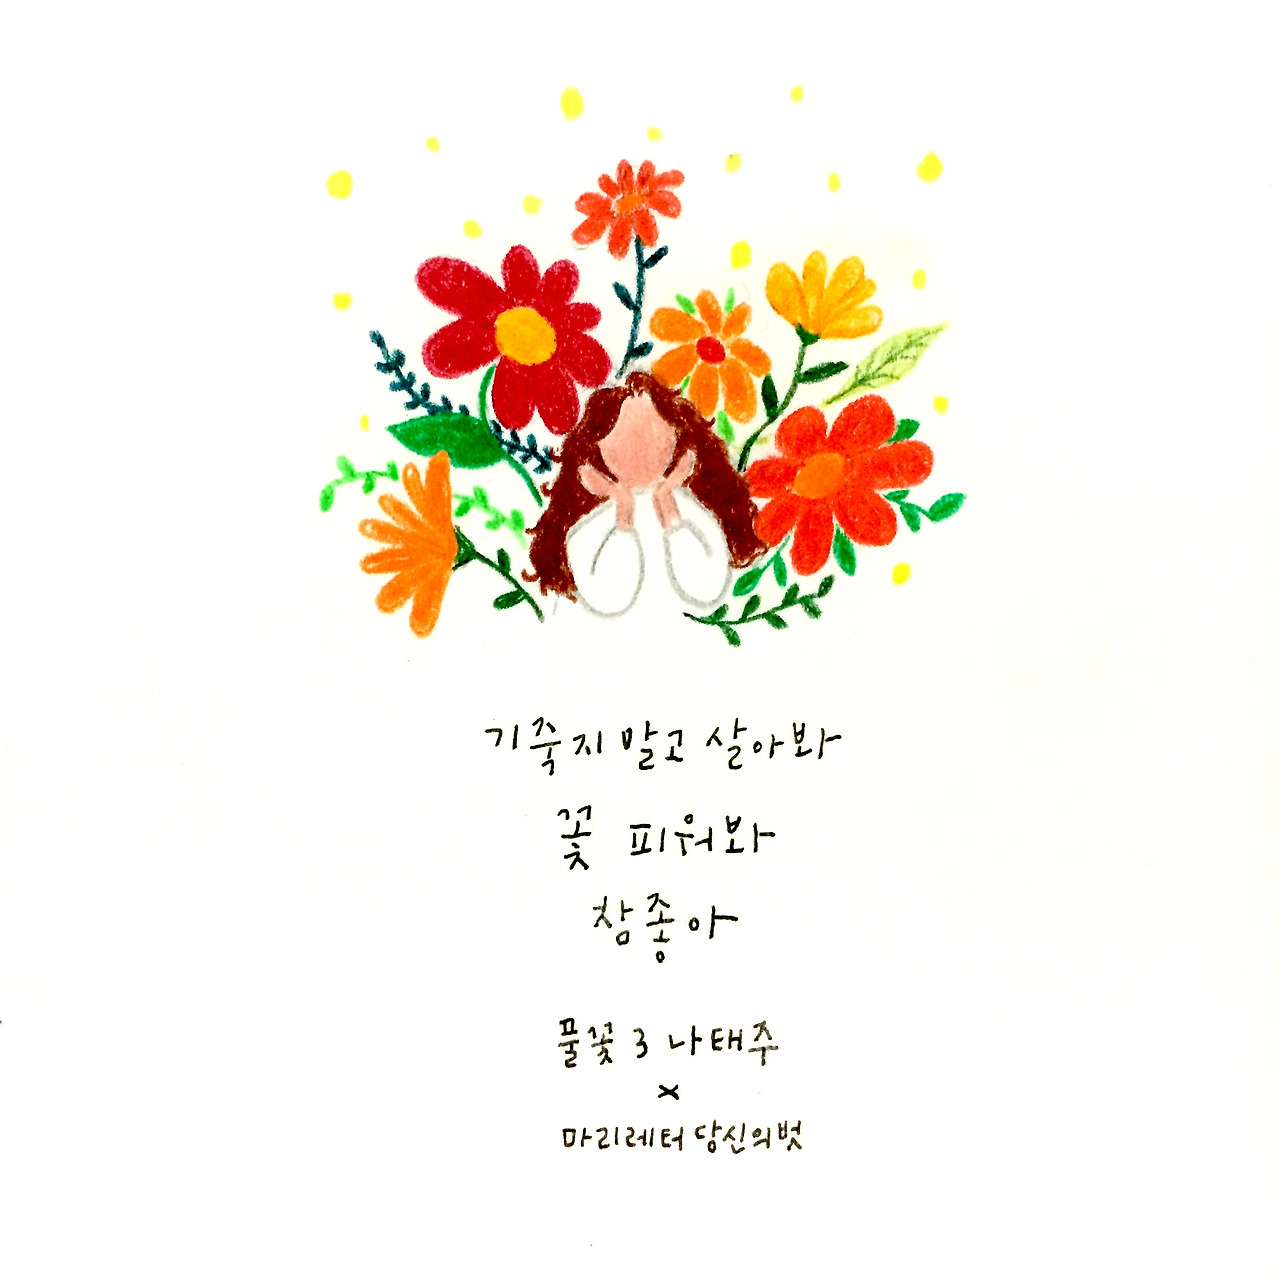 기죽지 말고 살아봐
꽃 피워봐
참좋아
풀꽃 3 나태주
x
마리레터 당신의벗